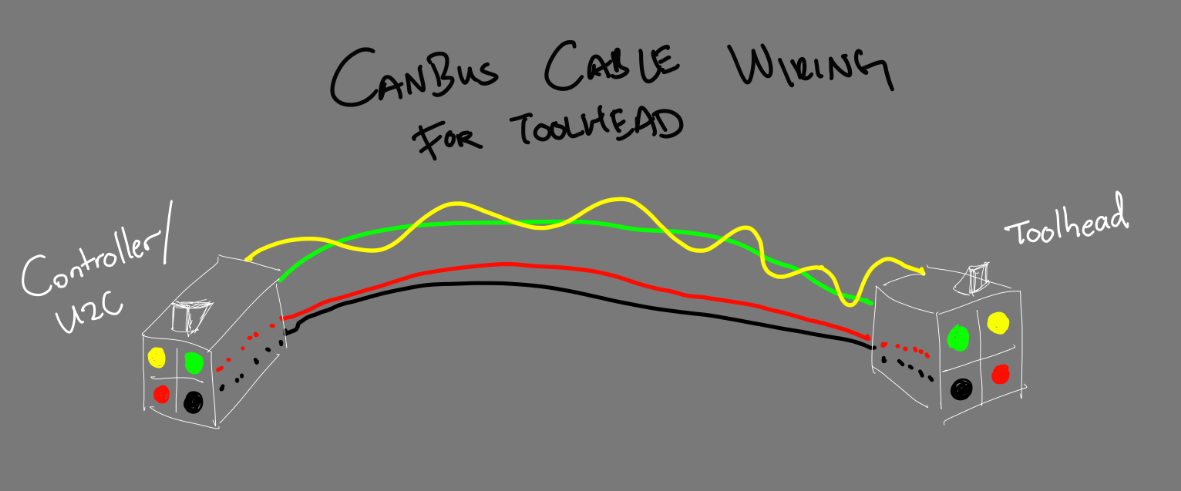 CANBUS CABLE WIRING
FOR TOOLHEAD
Controller/
U2C
Toolhead